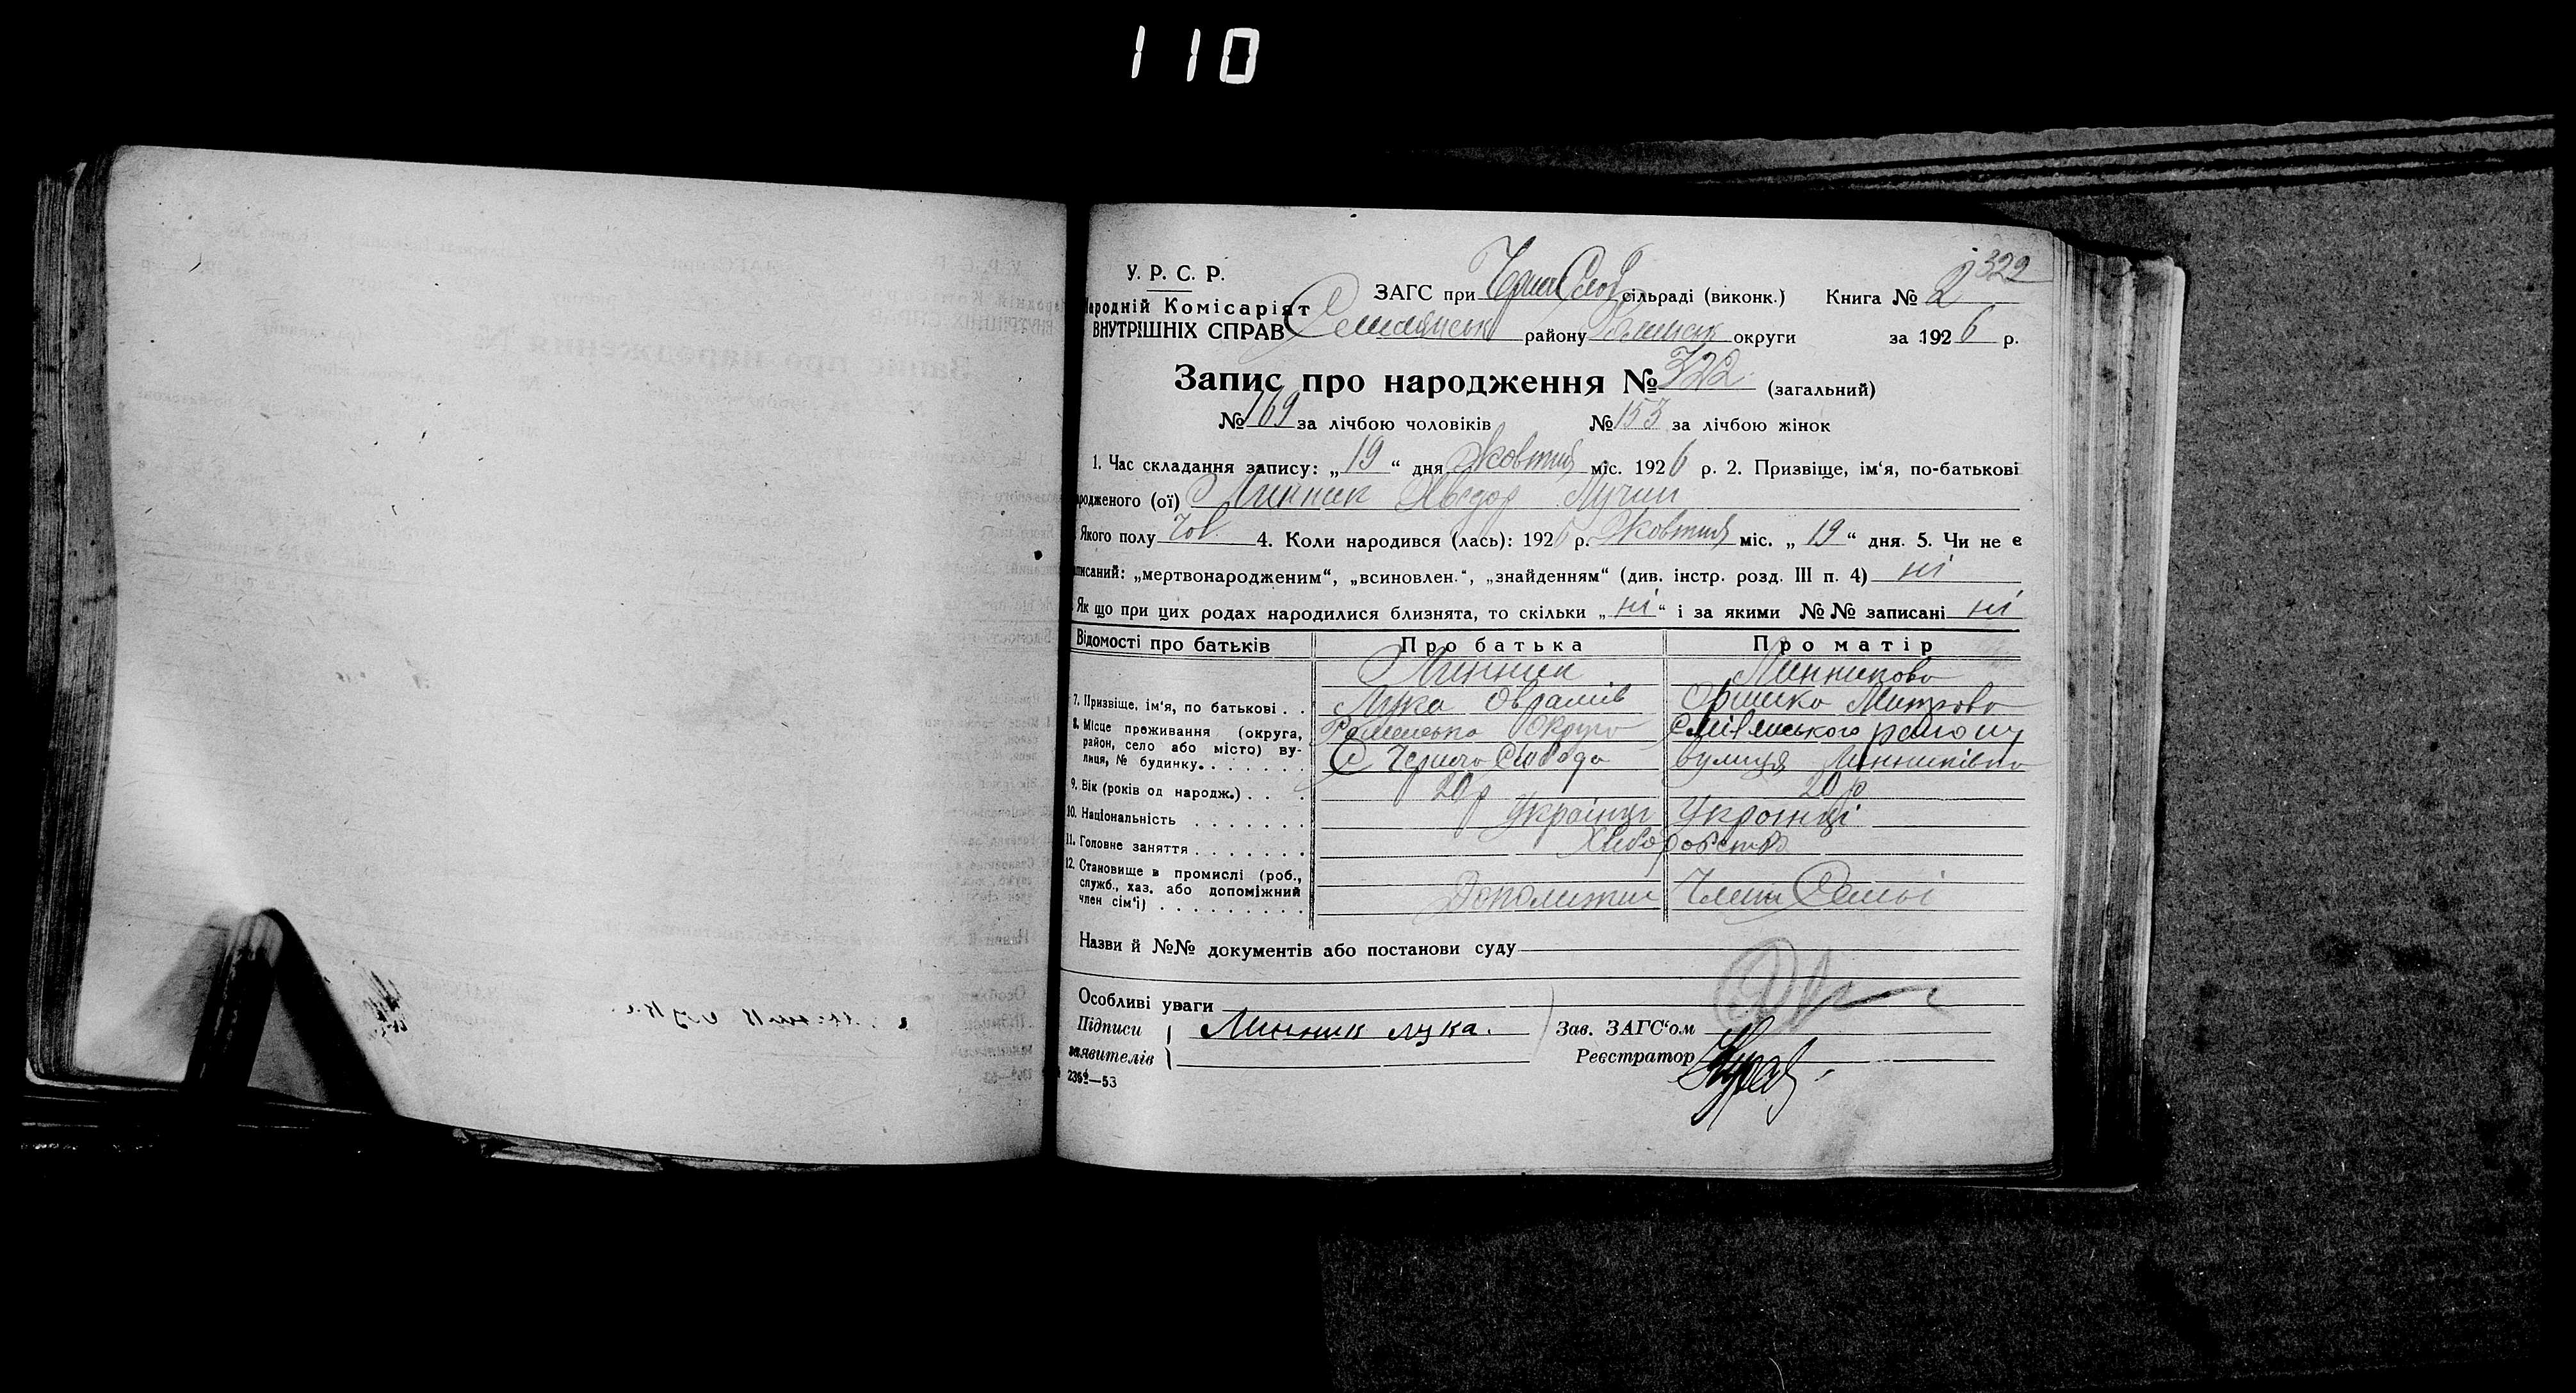 110
322
У. Р. С. Р.
Народній Комісаріят
ВНУТРІШНІХ СПРАВ
ЗАГС при сільраді (виконк.) Книга № 2
району округи за 1926 р.
Запис про народження № 322 (загальний)
№ 169 за лічбою чоловіків № 153 за лічбою жінок
1. Час складання запису: „19“ дня Жовтня міс. 1926 р. 2. Призвіще, ім‘я, по-батькові
родженого (ої) Минник Хведор Лучин
Якого полу чол. 4. Коли народився (лась): 1926 р. Жовтня міс. „19“ дня. 5. Чи не є
писаний: „мертвонародженим“, „всиновлен.“, „знайденням“ (див. інстр. розд. III п. 4) ні
Як що при цих родах народилися близнята, то скільки „ні“ і за якими №№ записані ні
Відомості про батьків Про батька Про матір
Минник Минникова
7. Призвіще, ім‘я, по батькові . . Лука Оврамів Оришка Митрова
8. Місце проживання (округа, район, село або місто) вулиця, № будинку. Роменська округа району
С Черна Слобода вулиця Минниківка
9. Вік (років од народж.) . . . 20 р 20 р
10. Національність . . . . . . . Українці Українці
11. Головне заняття . . . . . . . Хліборобство
12. Становище в промислі (роб.,
служб., хаз. або допоміжний
член сім‘ї) . . . . . . . . . Члени Семьі
Назви й №№ документів або постанови суду
Особливі уваги
Підписи Минник лука. Зав. ЗАГС‘ом
заявителів Реєстратор
236⁴—53